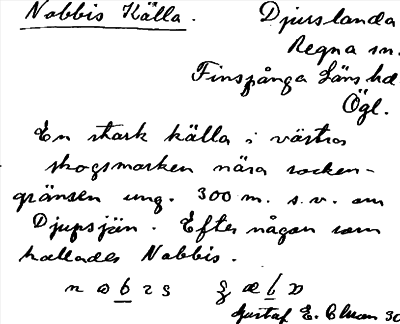 Nabbis Källa.
Djurslanda
Regna sn.
Finspånga Läns hd
Ögl.
En stark källa i västra
skogsmarken nära socken-
gränsen ung. 300 m. s.v. om
Djupsjön. Efter någon som
kallades Nabbis.
Gustaf E. 30